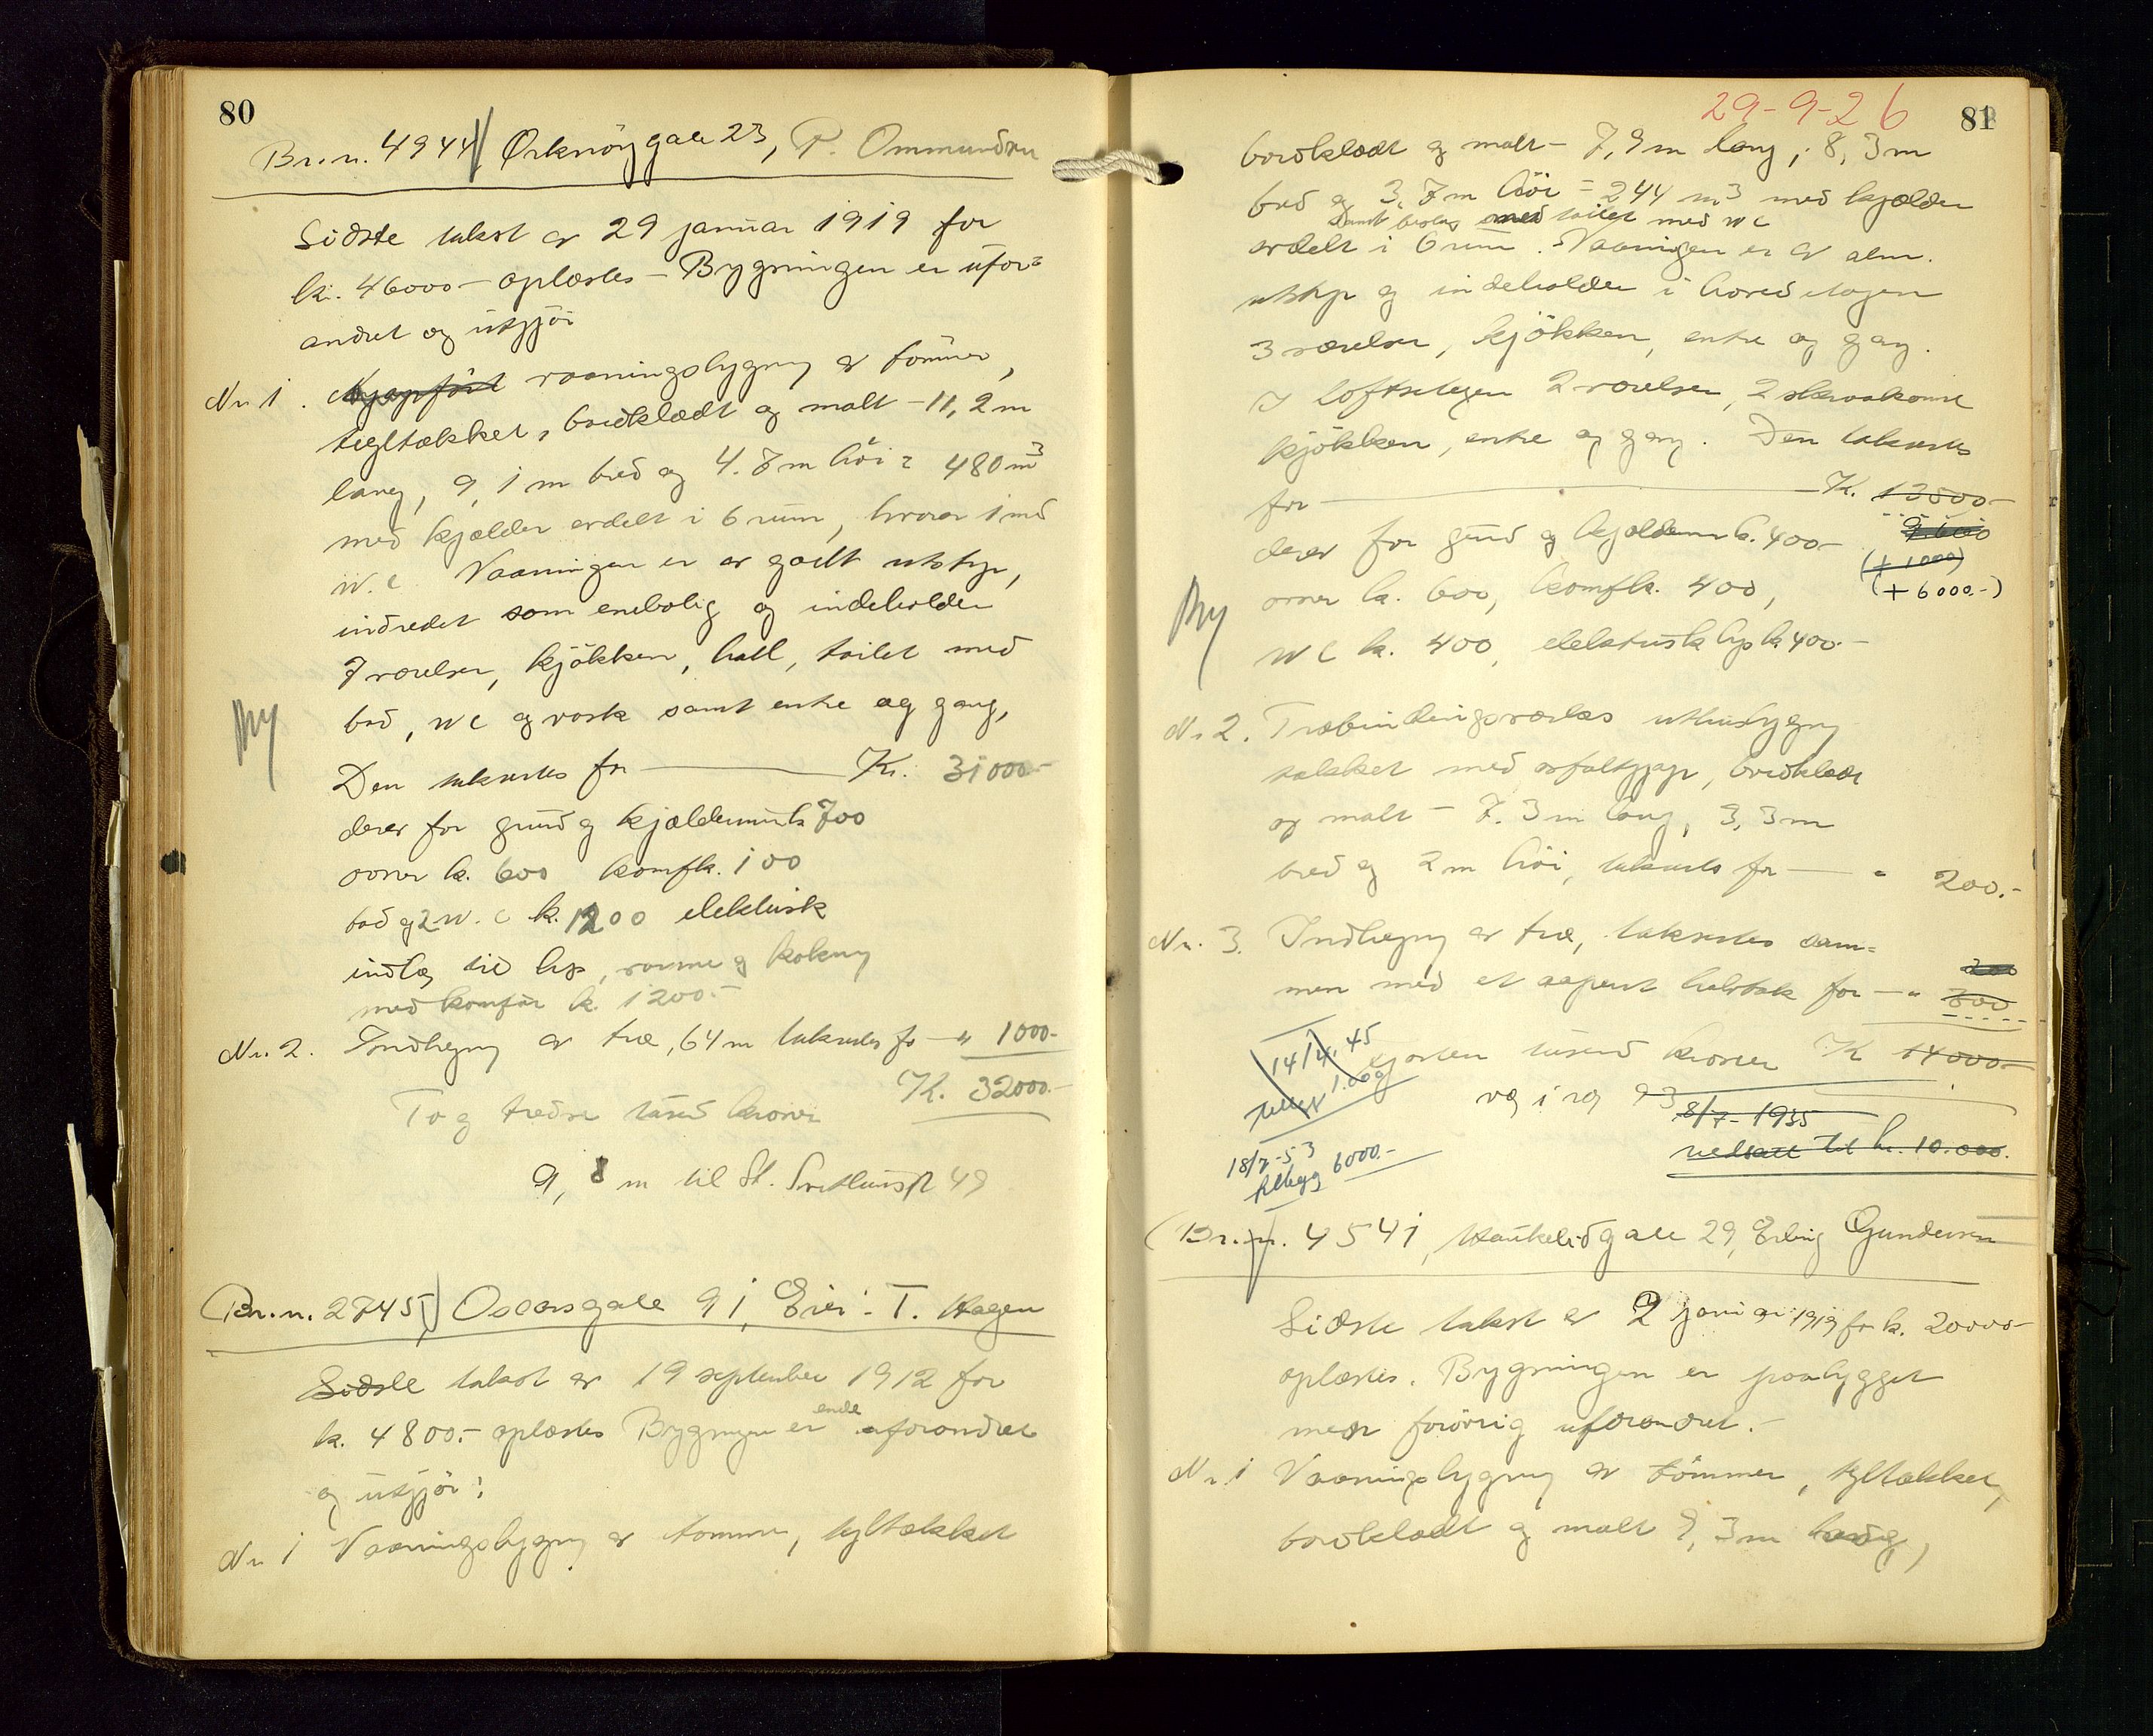 80
Br.n. 4944 Orknöygate 23, P. Ommundsen
Sidste takst av 29 januar 1919 for
kr. 46000 - oplæstes - Bygningen er ufor-
andret og utgjör
Nr 1. vaaningsbygning av tömmer,
tegltækket, bordklædt og malt - 11,2 m
lang, 9,1 m bred og 4.7 m höi = 480 m3
med kjelder avdelt i 6 rum, hvorav 1 med
W.C Vaaningen er av godt utstyr,
indredet som enebolig og indeholder
7 værelser, kjökken, hall, toilet med
bad, WC og vask samt entre og gang,
Den takseres for Kr. 31000.-
derav for grund og kjældermur k 700
ovner k. 600 komf k. 100
bad og 2 W.C k. 1200 elektrisk
indlæg til lys, varme og kokning
med komfür k. 1200.-
Nr. 2. Indhegning av træ, 64 m takseres for - " 1000.-
K. 32000.-
To og tredve tusend kroner
9,8 m til St. Svithunsgt 49
Br.n. 2745 Oscarsgate 91, Eier: T. Hagen
Sidste takst av 19 september 1912 for
k. 4800.- oplæstes Bygningen er uforandret
og utgjör:
Nr 1 Vaaningsbygning av tömmer, tegltækket
29-9-26
81
bordklædt og malt - 7,9 m lang, 8,3 m
bred og 3,7 m höi = 244 m3 med kjælder
med toilet med WC
avdelt i 6 rum. Vaaningen er av alm.
utstyr og indeholder i hovedetagen
3 værelser, kjökken, entre og gang.
I loftsetagen 2 værelser,
kjökken, entre og gang. Den takseres
for K. 13500-
derav for grund og kjeldermur k. 400-
(+ 1000)
(+ 6000.-)
ovner k. 600, komf k. 400,
WC k. 400, elektrisk lys k 400.-
Nr 2. Træbindingsværks uthusbygning
tækket med asfaltpap, bordklædt
og malt - 7.3 m lang, 3,3 m
bred og 2 m höi, takseres for - " 200.-
Nr. 3. Indhegning av træ, takseres sam-
men med et aapent halvtak for - " 300
14/4.45
tillegg 1.000
fjorten tusend kroner K 14000-
8/7-1935
nedsatt til kr. 10.000.
18/7-53
tillegg 6000.-
Br.n. 4541, Haukelidgate 29, Erling Gundersen
Sidste takst av 2 januar 1919 for k. 20000-
oplæstes. Bygningen er paabygget
men forövrig uforandret.-
Nr 1 Vaaningsbygning av tömmer, tegltækket,
bordklædt og malt 9,3 m lang,